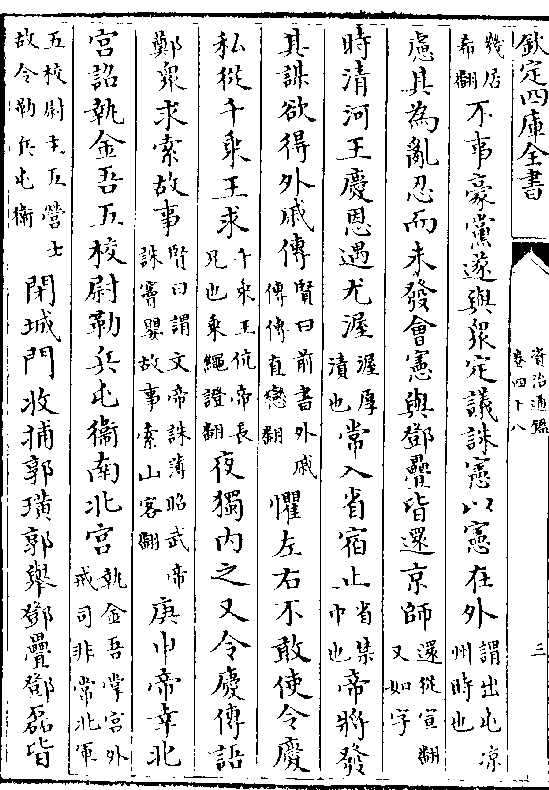 欽定四庫全書
資治通鑑
卷四十八
三
幾居希翻不事豪黨遂與衆定議誅憲以憲在外謂出屯凉州時也
慮其為亂忍而未發會憲與鄧疊皆還京師還從宣翻又如字
時清河王慶恩遇尤渥渥厚漬也常入省宿止省禁中也帝將發
其謀欲得外戚傳賢曰前書外戚傳傳直戀翻懼左右不敢使令慶
私從千乘王求千乘王伉帝長兄也乘繩證翻夜獨内之又令慶傳語
鄭衆求索故事賢曰謂文帝誅薄昭武帝誅竇嬰故事索山客翻庚申帝幸北
宫詔執金吾五校尉勒兵屯衛南北宫執金吾掌宫外戒司非常北軍
五校尉主五營士故令勒兵屯衛閉城門收捕郭璜郭舉鄧疊鄧磊皆